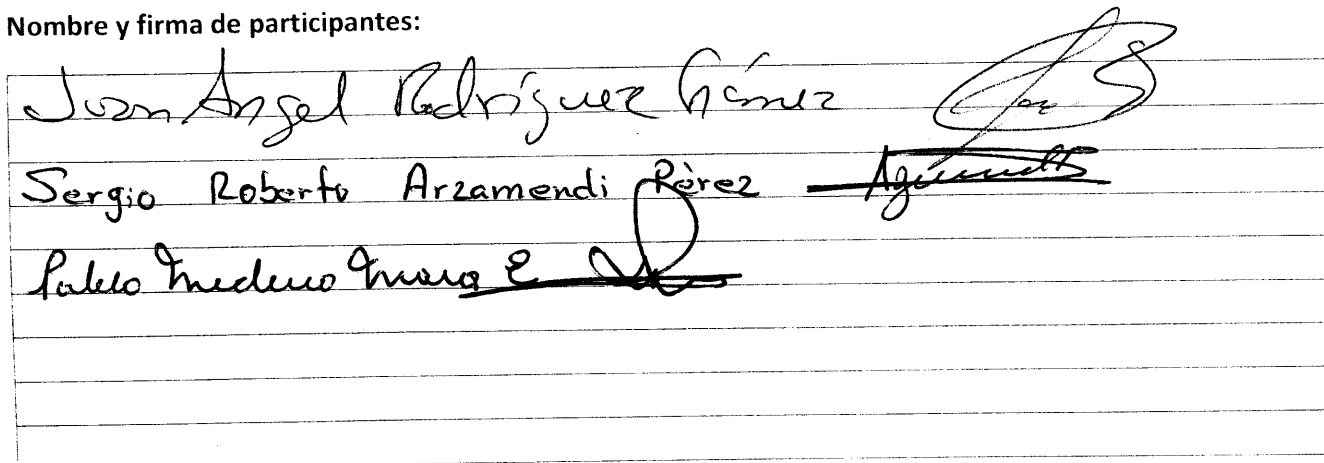 Nombre y firma de participantes:
Juan Angel Rodríguez Gámez
Sergio Roberto Arzamendi Pérez
Pablo